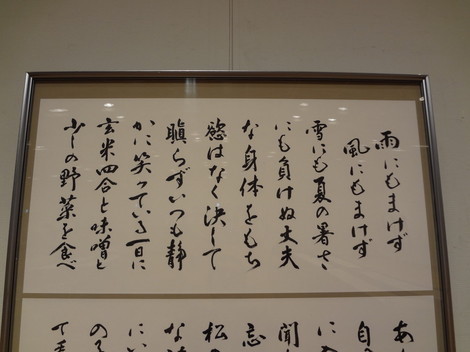 雨にもまけず
風にもまけず
雪にも夏の暑さ
にも負けぬ丈夫
な身体をもち
慾はなく決して
瞋らずいつも静
かに笑っている一日に
玄米四合と味噌と
少しの野菜を食べ
あ
自
に入
聞
忘
松
な
にい
のそ
て